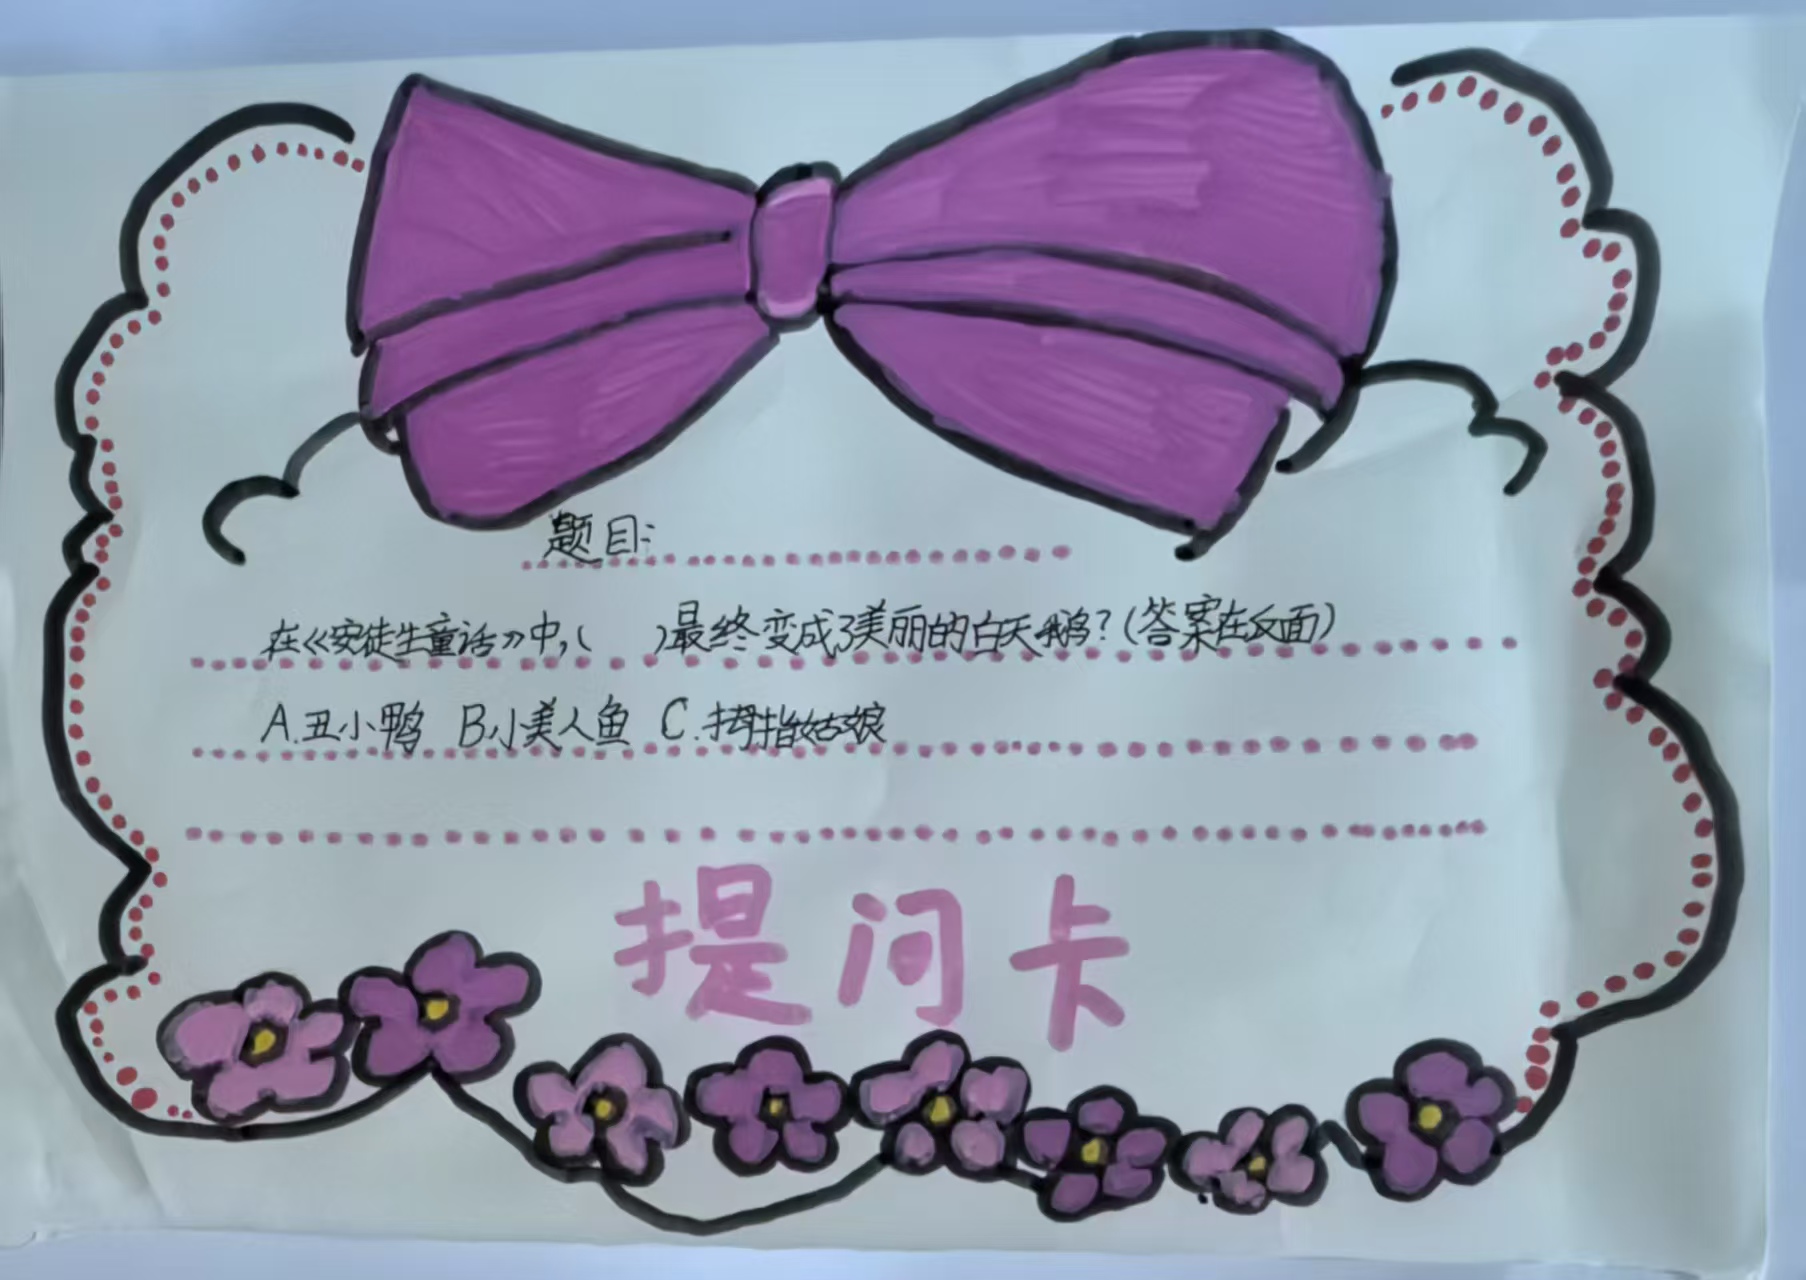 题目:
在《安徒生童话》中,(    )最终变成了美丽的白天鹅?(答案在反面)
A.丑小鸭 B.小美人鱼 C.拇指姑娘
提问卡